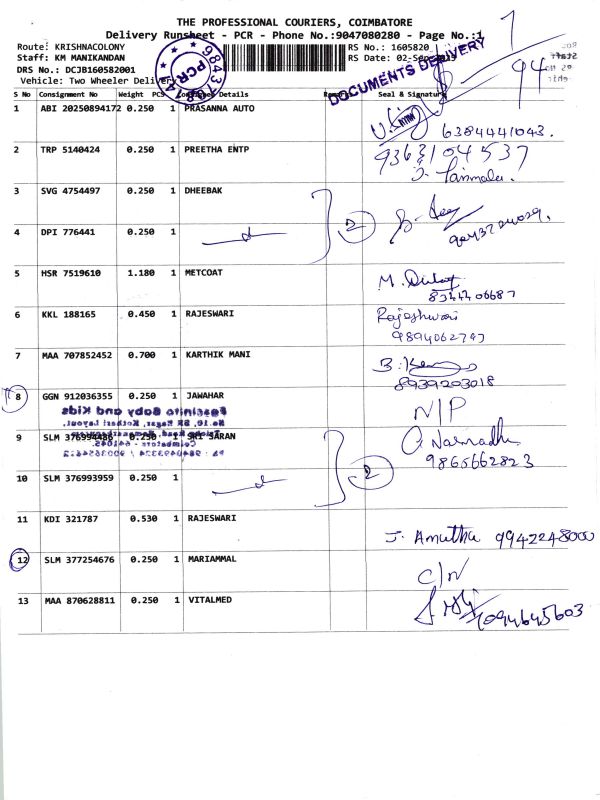 THE PROFESSIONAL COURIERS, COIMBATORE
Delivery Runsheet - PCR - Phone No.:9047080280 - Page No.:1
Route: KRISHNACOLONY RS No.: 1605820
Staff: KM MANIKANDAN RS Date: 02-Sep-2019
DRS No.: DCJB160582001
Vehicle: Two Wheeler Delivery
DOCUMENTS DELIVERY
PCR
94
S No Consignment No Weight PCS Details Seal & Signature
1 ABI 20250894172 0.250 1 PRASANNA AUTO
6384441043.
2 TRP 5140424 0.250 1 PREETHA ENTP
9363104537
3 SVG 4754497 0.250 1 DHEEBAK
2
4 DPI 776441 0.250 1
5 HSR 7519610 1.180 1 METCOAT
8344406687
6 KKL 188165 0.450 1 RAJESWARI Rajeshwari
9894062743
7 MAA 707852452 0.700 1 KARTHIK MANI
8939203018
8 GGN 912036355 0.250 1 JAWAHAR
N/P
9 SLM 376994486 0.250 1 SRI SARAN
9865662823
10 SLM 376993959 0.250 1
2
11 KDI 321787 0.530 1 RAJESWARI J. Amutha 9942248000
12 SLM 377254676 0.250 1 MARIAMMAL
C/N
13 MAA 870628811 0.250 1 VITALMED